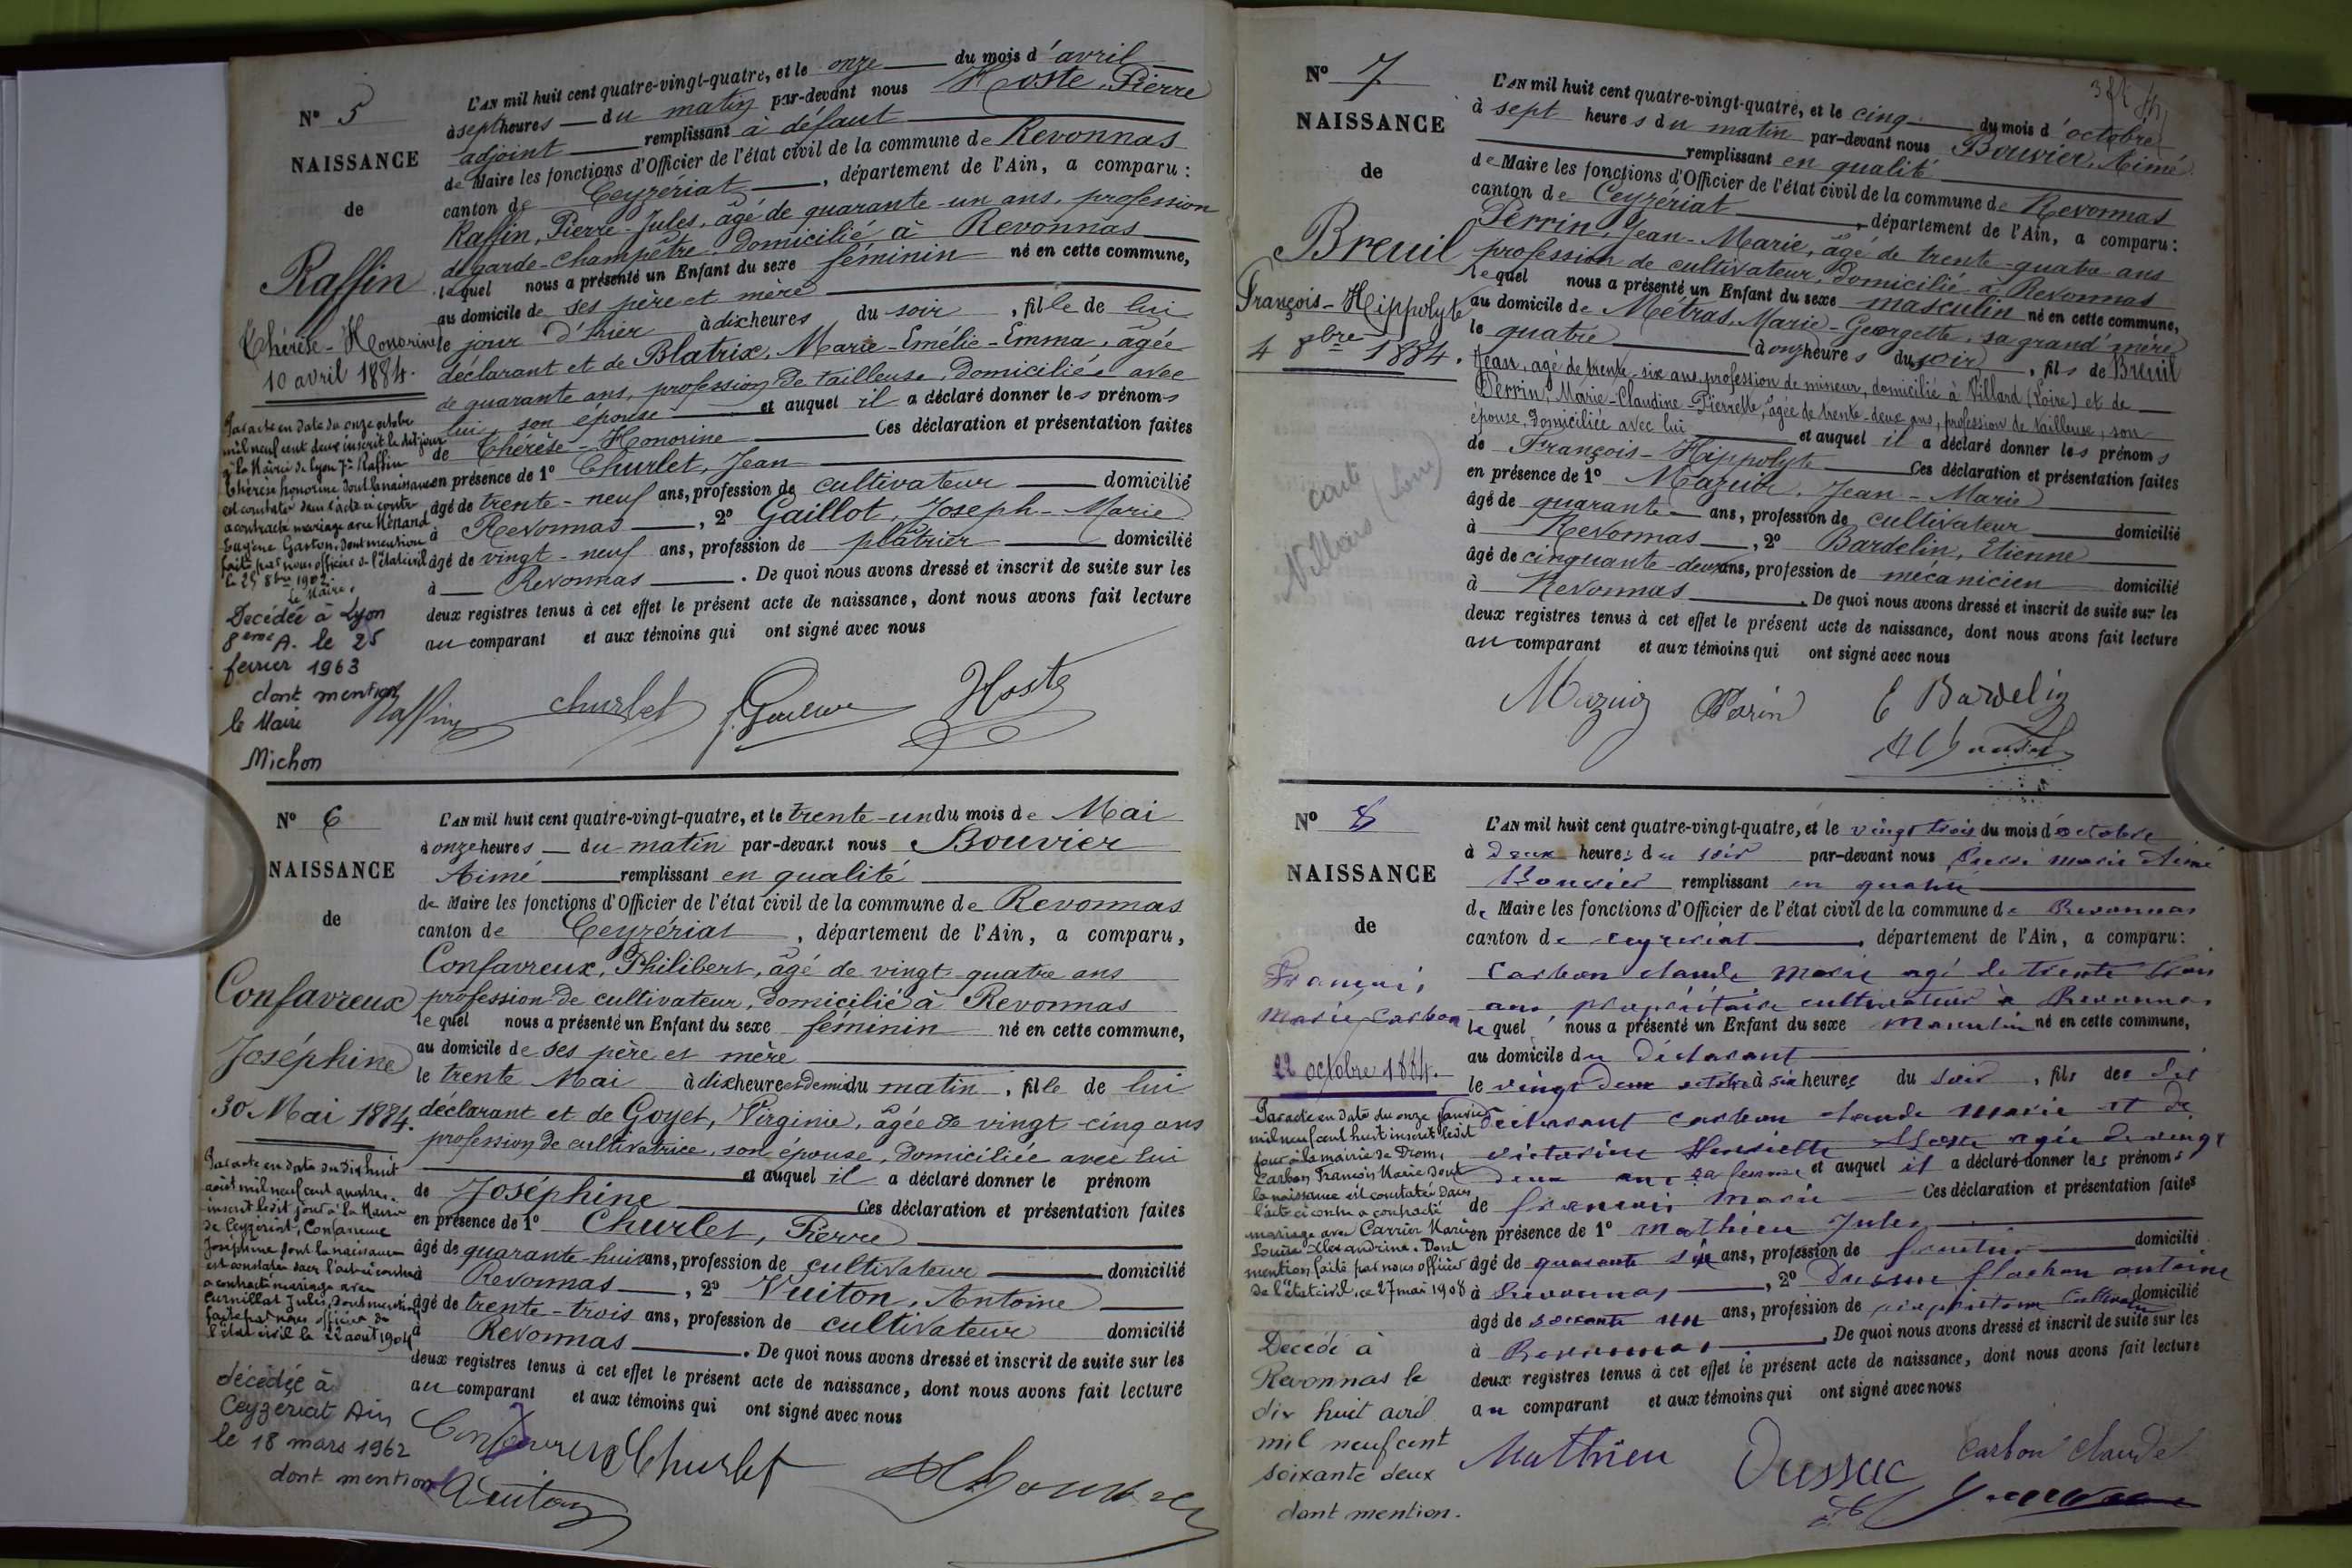 Nº 5
NAISSANCE
de
Raffin
Thérèse-Honorine
10 avril 1884.
Par acte en date du onze octobre
mil neuf cent deux inscrit le dit jour
à la Mairie de Lyon 7e Raffin
Thérèse honorine dont la naissance
est constatée dans l'acte ci contre
a contracté mariage avec
Eugène Gaston. Dont mention
faite par nous officier de l'état civil
le 25 8bre 1902.
Le Maire,
Decédée à Lyon
8ème A. le 25
fevrier 1963
dont mention
le Maire
Michon
L'AN mil huit cent quatre-vingt-quatre, et le onze du mois d'avril
à sept heures du matin par-devant nous Hoste, Pierre
adjoint remplissant à défaut
de Maire les fonctions d'Officier de l'état civil de la commune de Revonnas
canton de Ceyzériat, département de l'Ain, a comparu :
Raffin, Pierre-Jules, âgé de quarante-un ans, profession
de garde-champêtre, domicilié à Revonnas
lequel nous a présenté un Enfant du sexe féminin né en cette commune,
au domicile de ses père et mère
le jour d'hier à dix heures du soir, fille de lui
déclarant et de Blatrix, Marie-Emélie-Emma, âgée
de quarante ans, profession de tailleuse, domiciliée avec
lui, son épouse et auquel il a déclaré donner les prénoms
de Thérèse-Honorine Ces déclaration et présentation faites
en présence de 1º Churlet, Jean
âgé de trente-neuf ans, profession de cultivateur domicilié
à Revonnas, 2º Gaillot, Joseph-Marie
âgé de vingt-neuf ans, profession de plâtrier domicilié
à Revonnas. De quoi nous avons dressé et inscrit de suite sur les
deux registres tenus à cet effet le présent acte de naissance, dont nous avons fait lecture
au comparant et aux témoins qui ont signé avec nous
Raffin churlet Hoste
Nº 6
NAISSANCE
de
Confavreux
Joséphine
30 Mai 1884.
Par acte en date du dix huit
août mil neuf cent quatre,
inscrit le dit jour à la Mairie
de Ceyzériat, Confavreux
Joséphine dont la naissance
est constatée dans l'acte ci contre
a contracté mariage avec
Curnillat Jules, dont mention
faite par nous officier de
l'état civil le 22 août 1904
décédée à
Ceyzeriat Ain
le 18 mars 1962
dont mention
L'AN mil huit cent quatre-vingt-quatre, et le trente-un du mois de Mai
à onze heures du matin par-devant nous Bouvier
Aimé remplissant en qualité
de Maire les fonctions d'Officier de l'état civil de la commune de Revonnas
canton de Ceyzériat, département de l'Ain, a comparu,
Confavreux, Philibert, âgé de vingt-quatre ans
profession de cultivateur, domicilié à Revonnas
lequel nous a présenté un Enfant du sexe féminin né en cette commune,
au domicile de ses père et mère
le trente Mai à dix heures et demi du matin, fille de lui
déclarant et de Goyet, Virginie, âgée de vingt-cinq ans
profession de cultivatrice, son épouse, domiciliée avec lui
et auquel il a déclaré donner le prénom
de Joséphine Ces déclaration et présentation faites
en présence de 1º Churlet, Pierre
âgé de quarante-huit ans, profession de cultivateur domicilié
à Revonnas, 2º Vuiton, Antoine
âgé de trente-trois ans, profession de cultivateur domicilié
à Revonnas. De quoi nous avons dressé et inscrit de suite sur les
deux registres tenus à cet effet le présent acte de naissance, dont nous avons fait lecture
au comparant et aux témoins qui ont signé avec nous
Confavreux Churlet
Vuiton
Nº 7
NAISSANCE
de
Breuil
François-Hippolyte
4 8bre 1884.
L'AN mil huit cent quatre-vingt-quatre, et le cinq du mois d'octobre
à sept heures du matin par-devant nous Bouvier, Aimé
remplissant en qualité
de Maire les fonctions d'Officier de l'état civil de la commune de Revonnas
canton de Ceyzériat, département de l'Ain, a comparu :
Perrin, Jean-Marie, âgé de trente-quatre ans
profession de cultivateur, domicilié à Revonnas
lequel nous a présenté un Enfant du sexe masculin né en cette commune,
au domicile de Métras, Marie-Georgette, sa grand'mère
le quatre à onze heures du soir, fils de Breuil
Jean, agé de trente-six ans, profession de mineur, domicilié à Villard (Loire) et de
Perrin, Marie-Claudine-Pierrette, âgée de trente-deux ans, profession de tailleuse, son
épouse, domiciliée avec lui et auquel il a déclaré donner les prénoms
de François-Hippolyte Ces déclaration et présentation faites
en présence de 1º Mazuir, Jean-Marie
âgé de quarante ans, profession de cultivateur domicilié
à Revonnas, 2º Bardelin, Etienne
âgé de cinquante-deux ans, profession de mécanicien domicilié
à Revonnas. De quoi nous avons dressé et inscrit de suite sur les
deux registres tenus à cet effet le présent acte de naissance, dont nous avons fait lecture
au comparant et aux témoins qui ont signé avec nous
Mazuir Perin E Bardelin
Nº 8
NAISSANCE
de
François
Marie Carbon
22 octobre 1884.
Par acte en date du onze janvier
mil neuf cent huit inscrit le dit
jour à la mairie de Drom,
Carbon François Marie dont
la naissance est constatée dans
l'acte ci contre a contracté
mariage avec Carrier Marie
Louise Alexandrine. Dont
mention faite par nous officier
de l'état civil, ce 27 mai 1908
Decédé à
Revonnas le
dix huit avril
mil neuf cent
soixante deux
dont mention.
L'AN mil huit cent quatre-vingt-quatre, et le vingt trois du mois d'octobre
à deux heures du soir par-devant nous Marie Aimé
Bouvier remplissant en qualité
de Maire les fonctions d'Officier de l'état civil de la commune de Revonnas
canton de ceyzeriat, département de l'Ain, a comparu :
Carbon claude Marie agé de trente trois
ans, propriétaire cultivateur à Revonnas
lequel nous a présenté un Enfant du sexe Masculin né en cette commune,
au domicile du Déclarant
le vingt deux octobre à six heures du soir, fils de dit
déclarant carbon claude Marie et de
victorine Henriette agée de vingt
deux ans sa femme et auquel il a déclaré donner les prénoms
de françois Marie Ces déclaration et présentation faites
en présence de 1º Mathieu Jules
âgé de quarante six ans, profession de domicilié
à Revonnas, 2º flachon antoine
âgé de soixante un ans, profession de propriétaire cultivateur domicilié
à Revonnas. De quoi nous avons dressé et inscrit de suite sur les
deux registres tenus à cet effet le présent acte de naissance, dont nous avons fait lecture
au comparant et aux témoins qui ont signé avec nous
Matthieu Dussuc Carbon claude